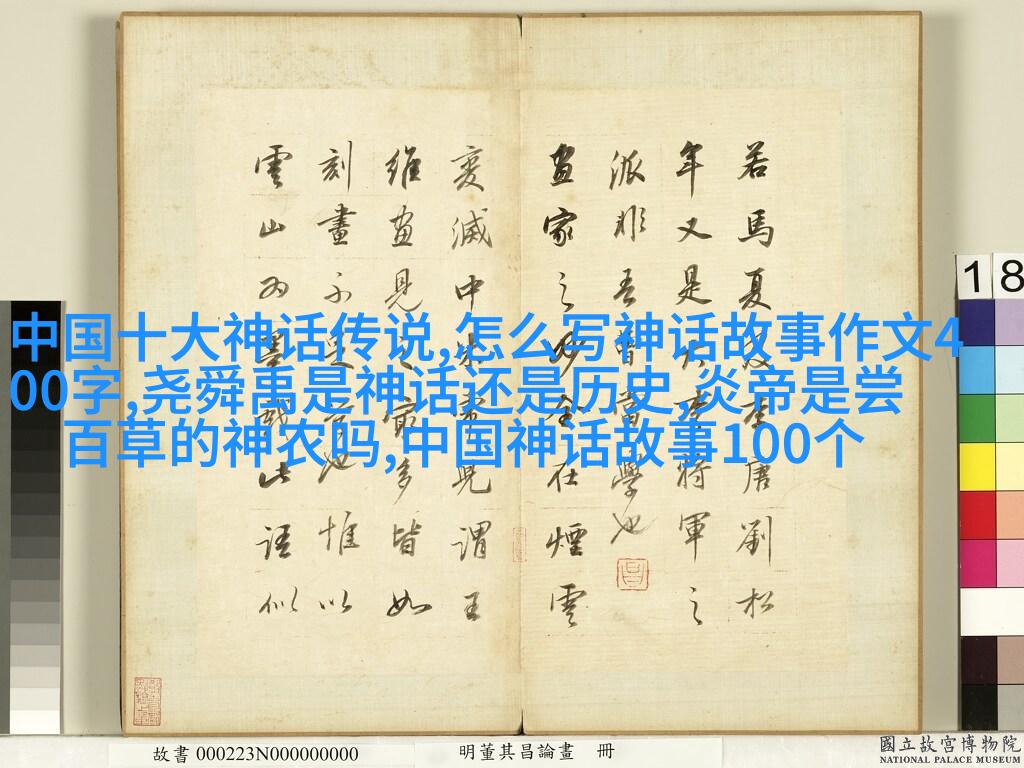 中国十大神话传说,怎么写神话故事作文4
00字,尧舜禹是神话还是历史,炎帝是尝
百草的神农吗,中国神话故事100个
若馬夏及李唐劉松
年又是大李將軍之
派非吾曹當學也
畫家之妙全在煙雲
變滅中米虎兒謂王
維畫見之最多皆如
刻畫不足學也惟以
雲山為墨戲此語似
18
故書 000223N000000000
明董其昌論畫 冊
國立故宮博物院
NATIONAL PALACE MUSEUM